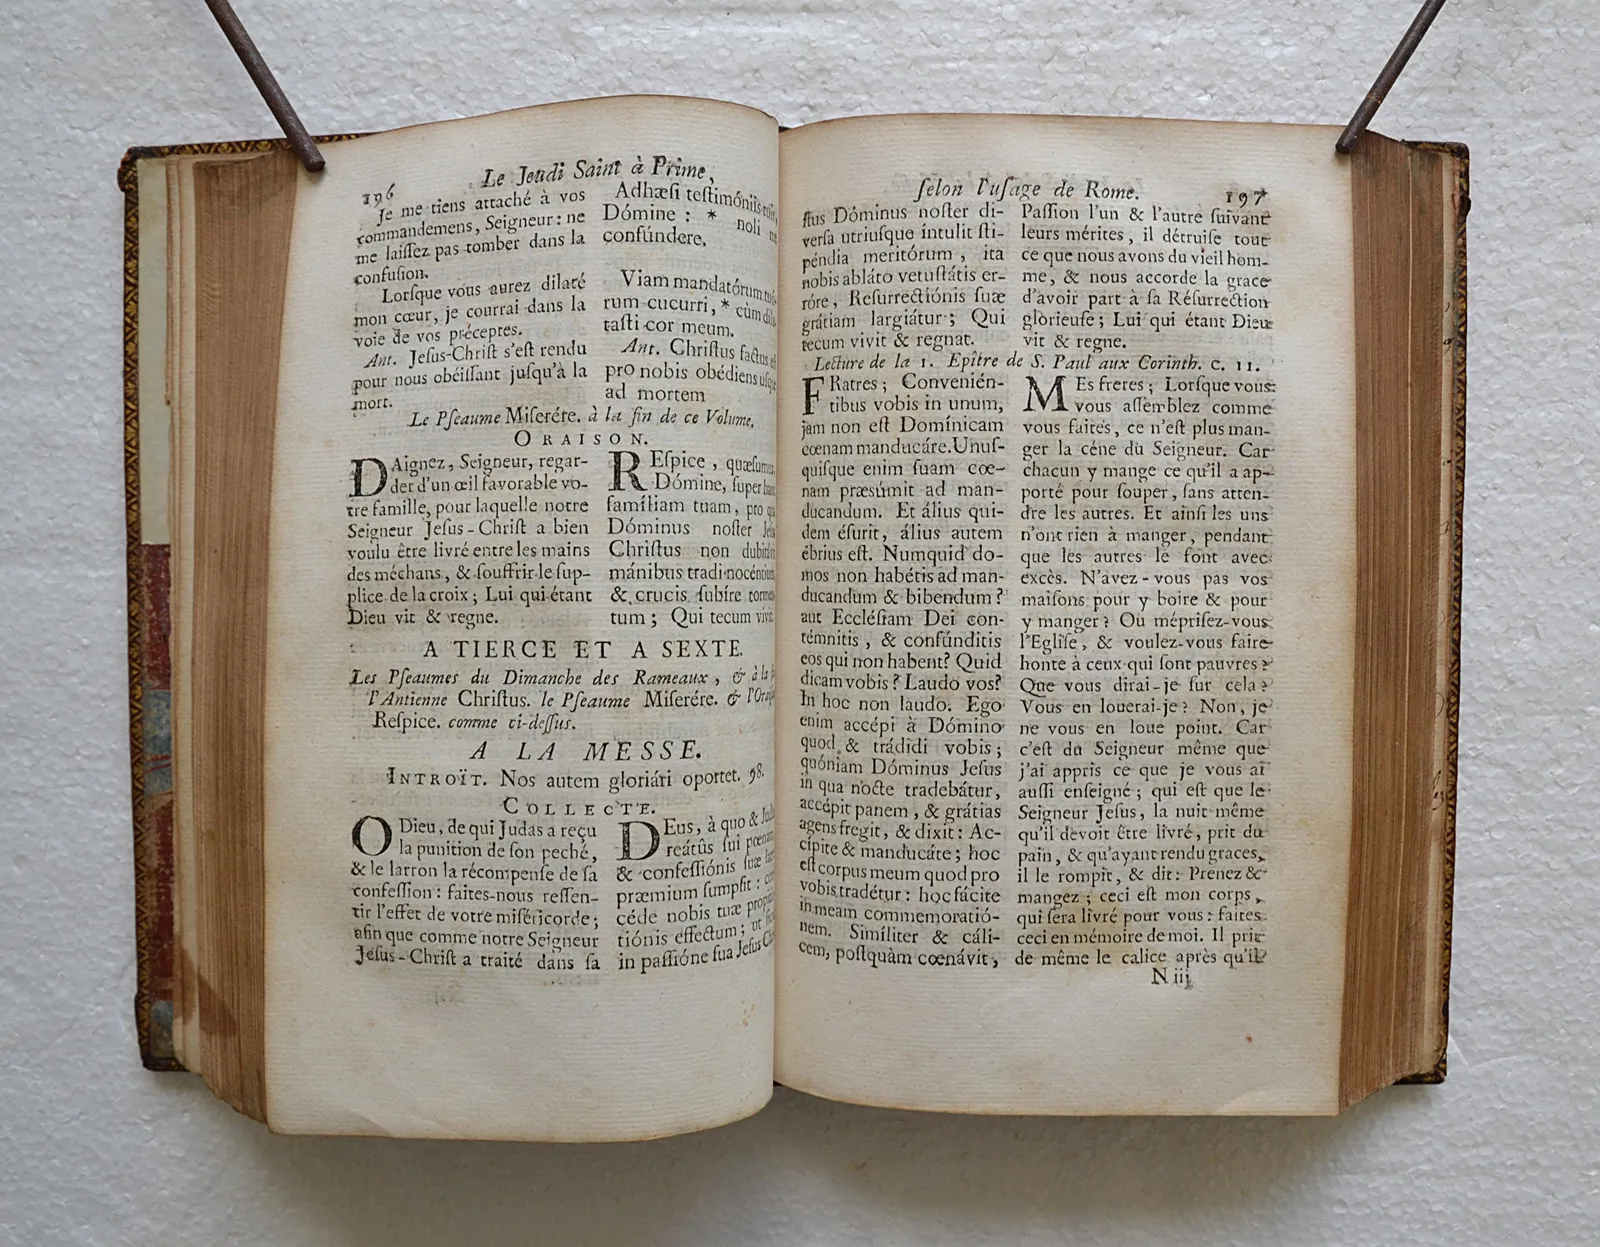 196 Le Jeudi Saint à Prime,
Je me tiens attaché à vos
commandemens, Seigneur : ne
me laiſſez pas tomber dans la
confuſion.
Lorſque vous aurez dilaté
mon cœur, je courrai dans la
voie de vos préceptes.
Ant. Jeſus-Chriſt s'eſt rendu
pour nous obéiſſant juſqu'à la
mort.
Adhæſi teſtimóniis
Dómine : * noli
confúndere.
Viam mandatórum
rum cucurri, * cùm
taſti cor meum.
Ant. Chriſtus factus
pro nobis obédiens
ad mortem
Le Pſeaume Miſerére. à la fin de ce Volume.
ORAISON.
DAignez, Seigneur, regar-
der d'un œil favorable vo-
tre famille, pour laquelle notre
Seigneur Jeſus-Chriſt a bien
voulu être livré entre les mains
des méchans, & ſouffrir le ſup-
plice de la croix ; Lui qui étant
Dieu vit & regne.
REſpice, quæſumus
Dómine, ſuper
famíliam tuam, pro
Dóminus noſter
Chriſtus non
mánibus tradi nocéntium
& crucis ſubíre
tum ; Qui tecum
A TIERCE ET A SEXTE.
Les Pſeaumes du Dimanche des Rameaux, & à la
l'Antienne Chriſtus. le Pſeaume Miſerére. &
Reſpice. comme ci-deſſus.
A LA MESSE.
INTROÏT. Nos autem gloriári oportet. 98.
COLLECTE.
O Dieu, de qui Judas a reçu
la punition de ſon peché,
& le larron la récompenſe de ſa
confeſſion : faites-nous reſſen-
tir l'effet de votre miſéricorde ;
afin que comme notre Seigneur
Jeſus-Chriſt a traité dans ſa
DEus, à quo &
reátûs ſui pœnam
& confeſſiónis ſuæ
præmium ſumpſit :
céde nobis tuæ
tiónis effectum ; ut
in paſſióne ſua Jeſus
ſelon l'uſage de Rome. 197
ſtus Dóminus noſter di-
verſa utriuſque íntulit ſti-
péndia meritórum, ita
nobis abláto vetuſtátis er-
róre, Reſurrectiónis ſuæ
grátiam largiátur ; Qui
tecum vivit & regnat.
Paſſion l'un & l'autre ſuivant
leurs mérites, il détruiſe tout
ce que nous avons du vieil hom-
me, & nous accorde la grace
d'avoir part à ſa Réſurrection
glorieuſe ; Lui qui étant Dieu
vit & regne.
Lecture de la 1. Epître de S. Paul aux Corinth. C. 11.
FRatres ; Convenién-
tibus vobis in unum,
jam non eſt Domínicam
cœnam manducáre. Unuſ-
quiſque enim ſuam cœ-
nam præsúmit ad man-
ducandum. Et álius qui-
dem éſurit, álius autem
ébrius eſt. Numquid do-
mos non habétis ad man-
ducandum & bibendum ?
aut Eccléſiam Dei con-
témnitis, & confúnditis
eos qui non habent ? Quid
dicam vobis ? Laudo vos ?
In hoc non laudo. Ego
enim accépi à Dómino
quod & trádidi vobis ;
quóniam Dóminus Jeſus
in qua nocte tradebátur,
accépit panem, & grátias
agens fregit, & dixit : Ac-
cípite & manducáte ; hoc
eſt corpus meum quod pro
vobis tradétur : hoc fácite
in meam commemoratió-
nem. Simíliter & cáli-
cem, poſtquàm cœnávit,
MEs freres ; Lorſque vous
vous aſſemblez comme
vous faites, ce n'eſt plus man-
ger la céne du Seigneur. Car
chacun y mange ce qu'il a ap-
porté pour ſouper, ſans atten-
dre les autres. Et ainſi les uns
n'ont rien à manger, pendant
que les autres le font avec
excès. N'avez-vous pas vos
maiſons pour y boire & pour
y manger ? Ou mépriſez-vous
l'Egliſe, & voulez-vous faire
honte à ceux qui ſont pauvres ?
Que vous dirai-je ſur cela ?
Vous en louerai-je ? Non, je
ne vous en loue point. Car
c'eſt du Seigneur même que
j'ai appris ce que je vous ai
auſſi enſeigné ; qui eſt que le
Seigneur Jeſus, la nuit même
qu'il devoit être livré, prit du
pain, & qu'ayant rendu graces,
il le rompit, & dit : Prenez &
mangez ; ceci eſt mon corps,
qui ſera livré pour vous : faites
ceci en mémoire de moi. Il prit
de même le calice après qu'il
N iij